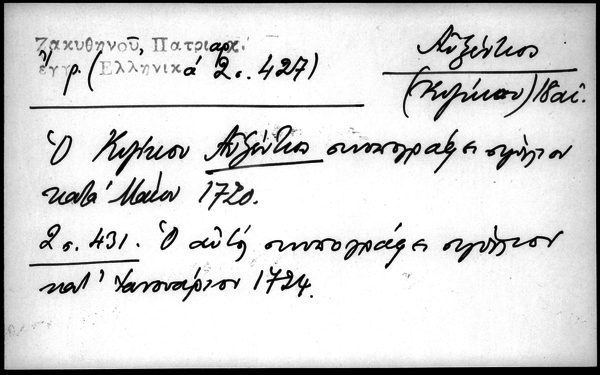 Ζακυθηνοῦ, Πατριαρχ.
ἔγγρ. (Ἑλληνικά 2 σ. 427)
Αὐξέντιος
(Κυζίκου) 18 αἰ.
Ὁ Κυζίκου Αὐξέντιος συνυπογράφει σιγίλλιον
κατὰ Μαΐον 1720.
2 σ. 431. Ὁ αὐτὸς συνυπογράφει σιγίλλιον
κατ' Ἰανουάριον 1724.